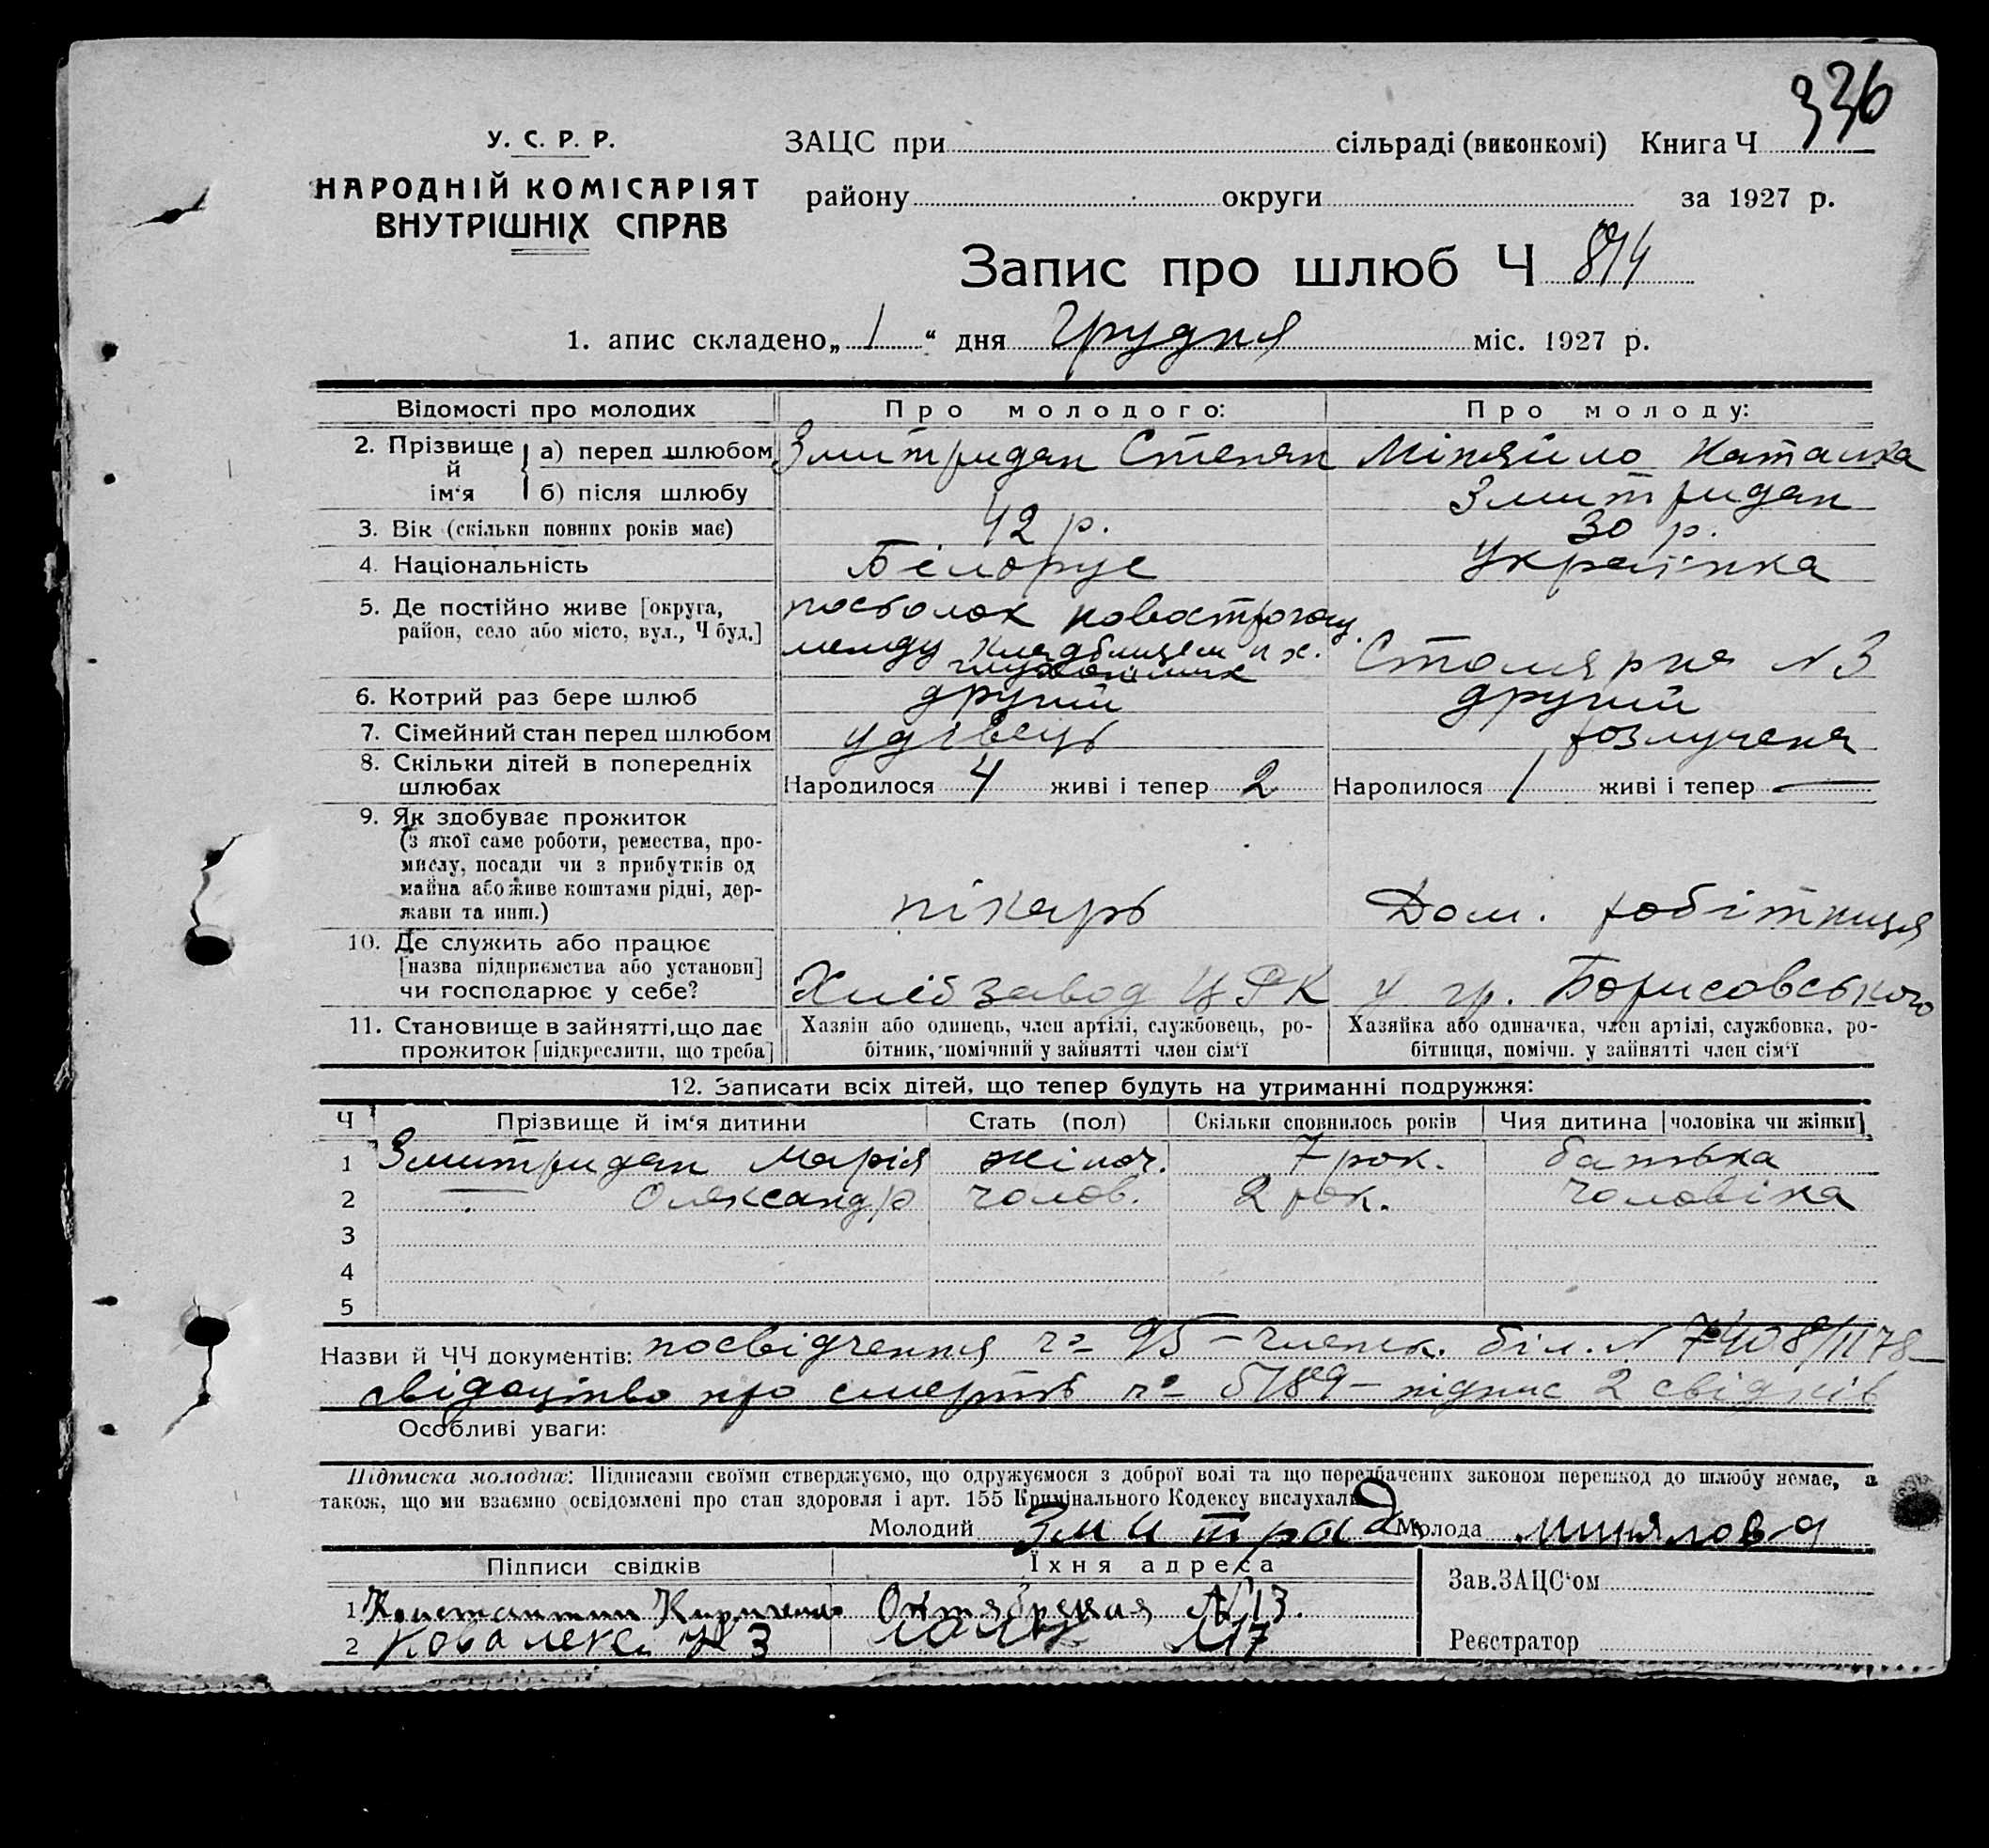 336
У. С. Р. Р.
НАРОДНІЙ КОМІСАРІЯТ
ВНУТРІШНІХ СПРАВ
ЗАЦС при сільраді (виконкомі) Книга Ч
району округи за 1927 р.
Запис про шлюб Ч 814
1. апис складено „1“ дня Грудня міс. 1927 р.
Відомості про молодих Про молодого: Про молоду:
2. Прізвище й ім'я а) перед шлюбом Змитридан Степан Міняйло Наталка
б) після шлюбу Змитридан
3. Вік (скільки повних років має) 42 р. 30 р.
4. Національність Білорус Українка
5. Де постійно живе [округа, район, село або місто, вул., Ч буд.] посьолок
между кладбищем и х. Столярна N 3
6. Котрий раз бере шлюб другий другий
7. Сімейний стан перед шлюбом удівець розлучена
8. Скільки дітей в попередніх шлюбах Народилося 4 живі і тепер 2 Народилося 1 живі і тепер —
9. Як здобуває прожиток
(з якої саме роботи, ремества, про-
мислу, посади чи з прибутків од
майна або живе коштами рідні, дер-
жави та инш.) пікарь Дом. робітниця
10. Де служить або працює
[назва підприємства або установи]
чи господарює у себе? Хлібзавод ЦРК у гр. Борисовського
11. Становище в зайнятті, що дає
прожиток [підкреслити, що треба]
Хазяїн або одинець, член артілі, службовець, ро-
бітник, помічний у зайнятті член сім'ї
Хазяйка або одиначка, член артілі, службовка, ро-
бітниця, помічн. у зайнятті член сім'ї
12. Записати всіх дітей, що тепер будуть на утриманні подружжя:
Ч Прізвище й ім'я дитини Стать (пол) Скільки сповнилось років Чия дитина [чоловіка чи жінки]
1 Змитридан Марія жіноч. 7 рок. батька
2 —„— Олександр чолов. 2 рок. чоловіка
3
4
5
Назви й ЧЧ документів: посвідчення № 95 – членск. біл. N 7408/1178 –
свідоцтво про смерть № 5789 – підпис 2 свідків
Особливі уваги:
Підписка молодих: Підписами своїми стверджуємо, що одружуємося з доброї волі та що передбачених законом перешкод до шлюбу немає, а
також, що ми взаємно освідомлені про стан здоровля і арт. 155 Кримінального Кодексу вислухали
Молодий Змитрад Молода Минялова
Підписи свідків Їхня адреса Зав. ЗАЦС'ом
1 Константин Октябрская N 13.
2 N 17 Реєстратор